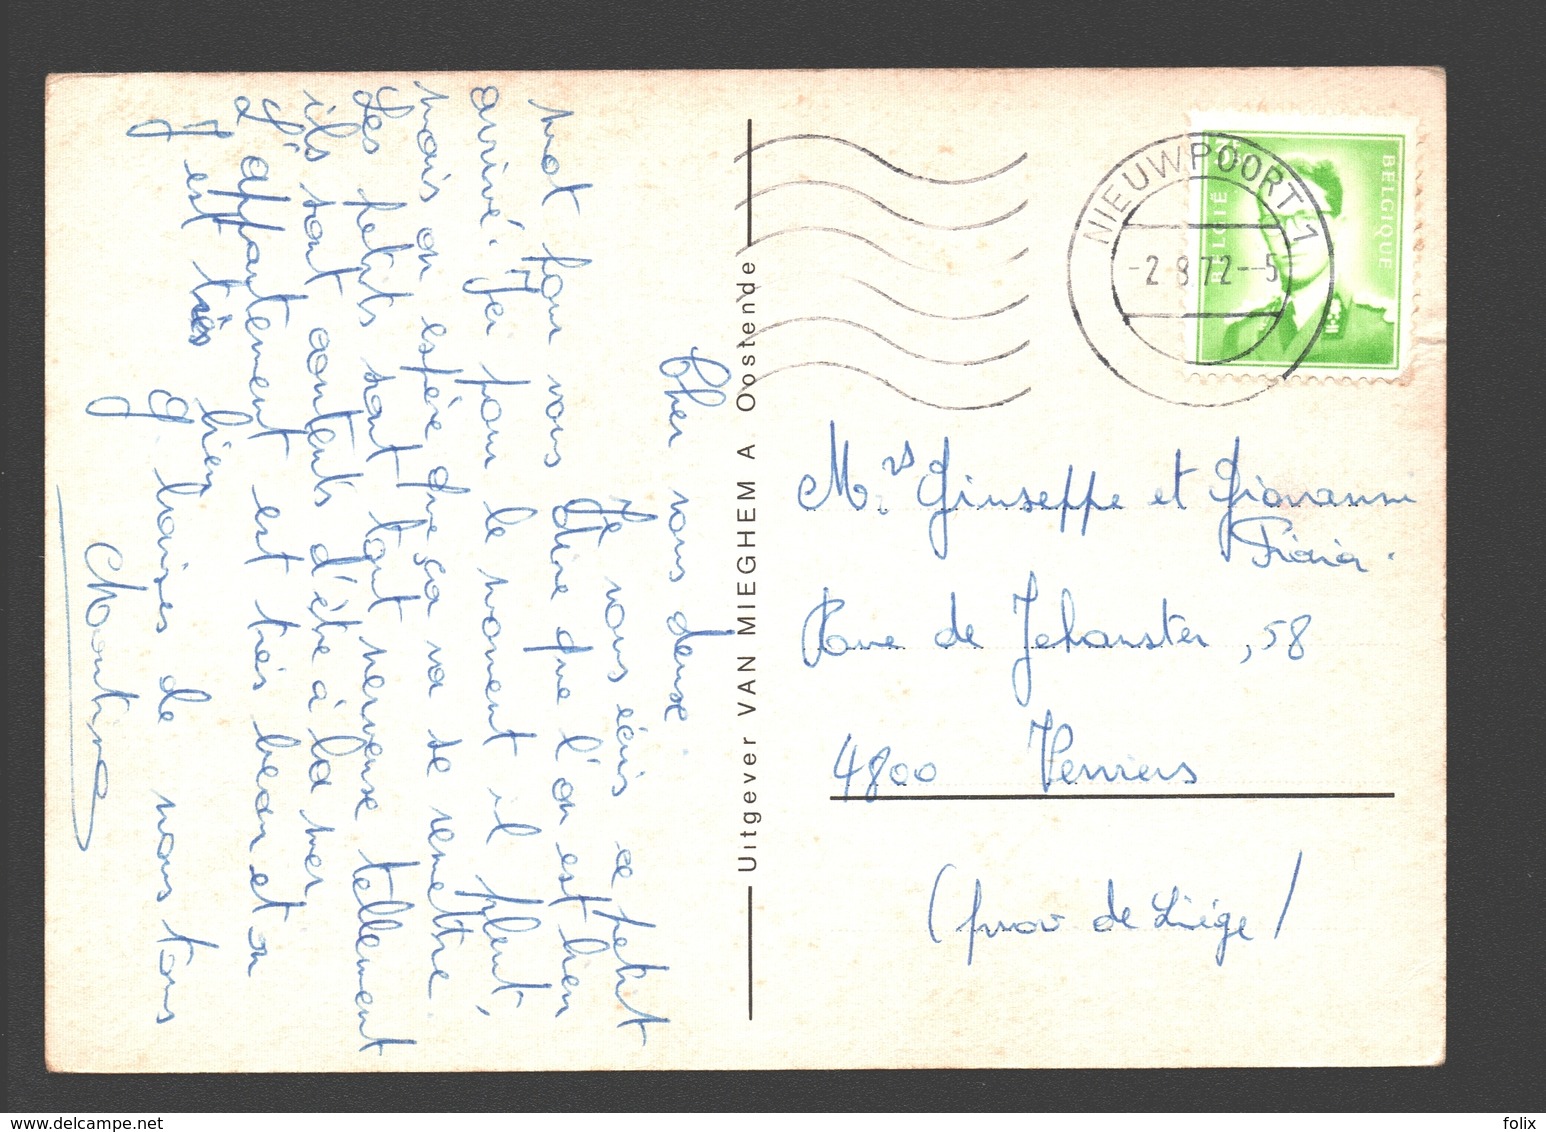 Cher vous deux
Je vous écris ce petit
mot pour vous dire que l'on est bien
arrivé. Ici pour le moment il pleut,
mais on espère que ça va se remettre.
Les petits sont tout nerveuse tellement
ils sont contents d'être à la mer.
L'appartement est très beau et on
y est très bien
G baises de nous tous
Uitgever VAN MIEGHEM A Oostende
NIEUWPOORT 1
-2.8.72--5
BELGIË
BELGIQUE
Mrs Giuseppe et Giovanni
Rue de Jehanster, 58
4800 Verviers
(prov de Liége)
www.delcampe.net
folix